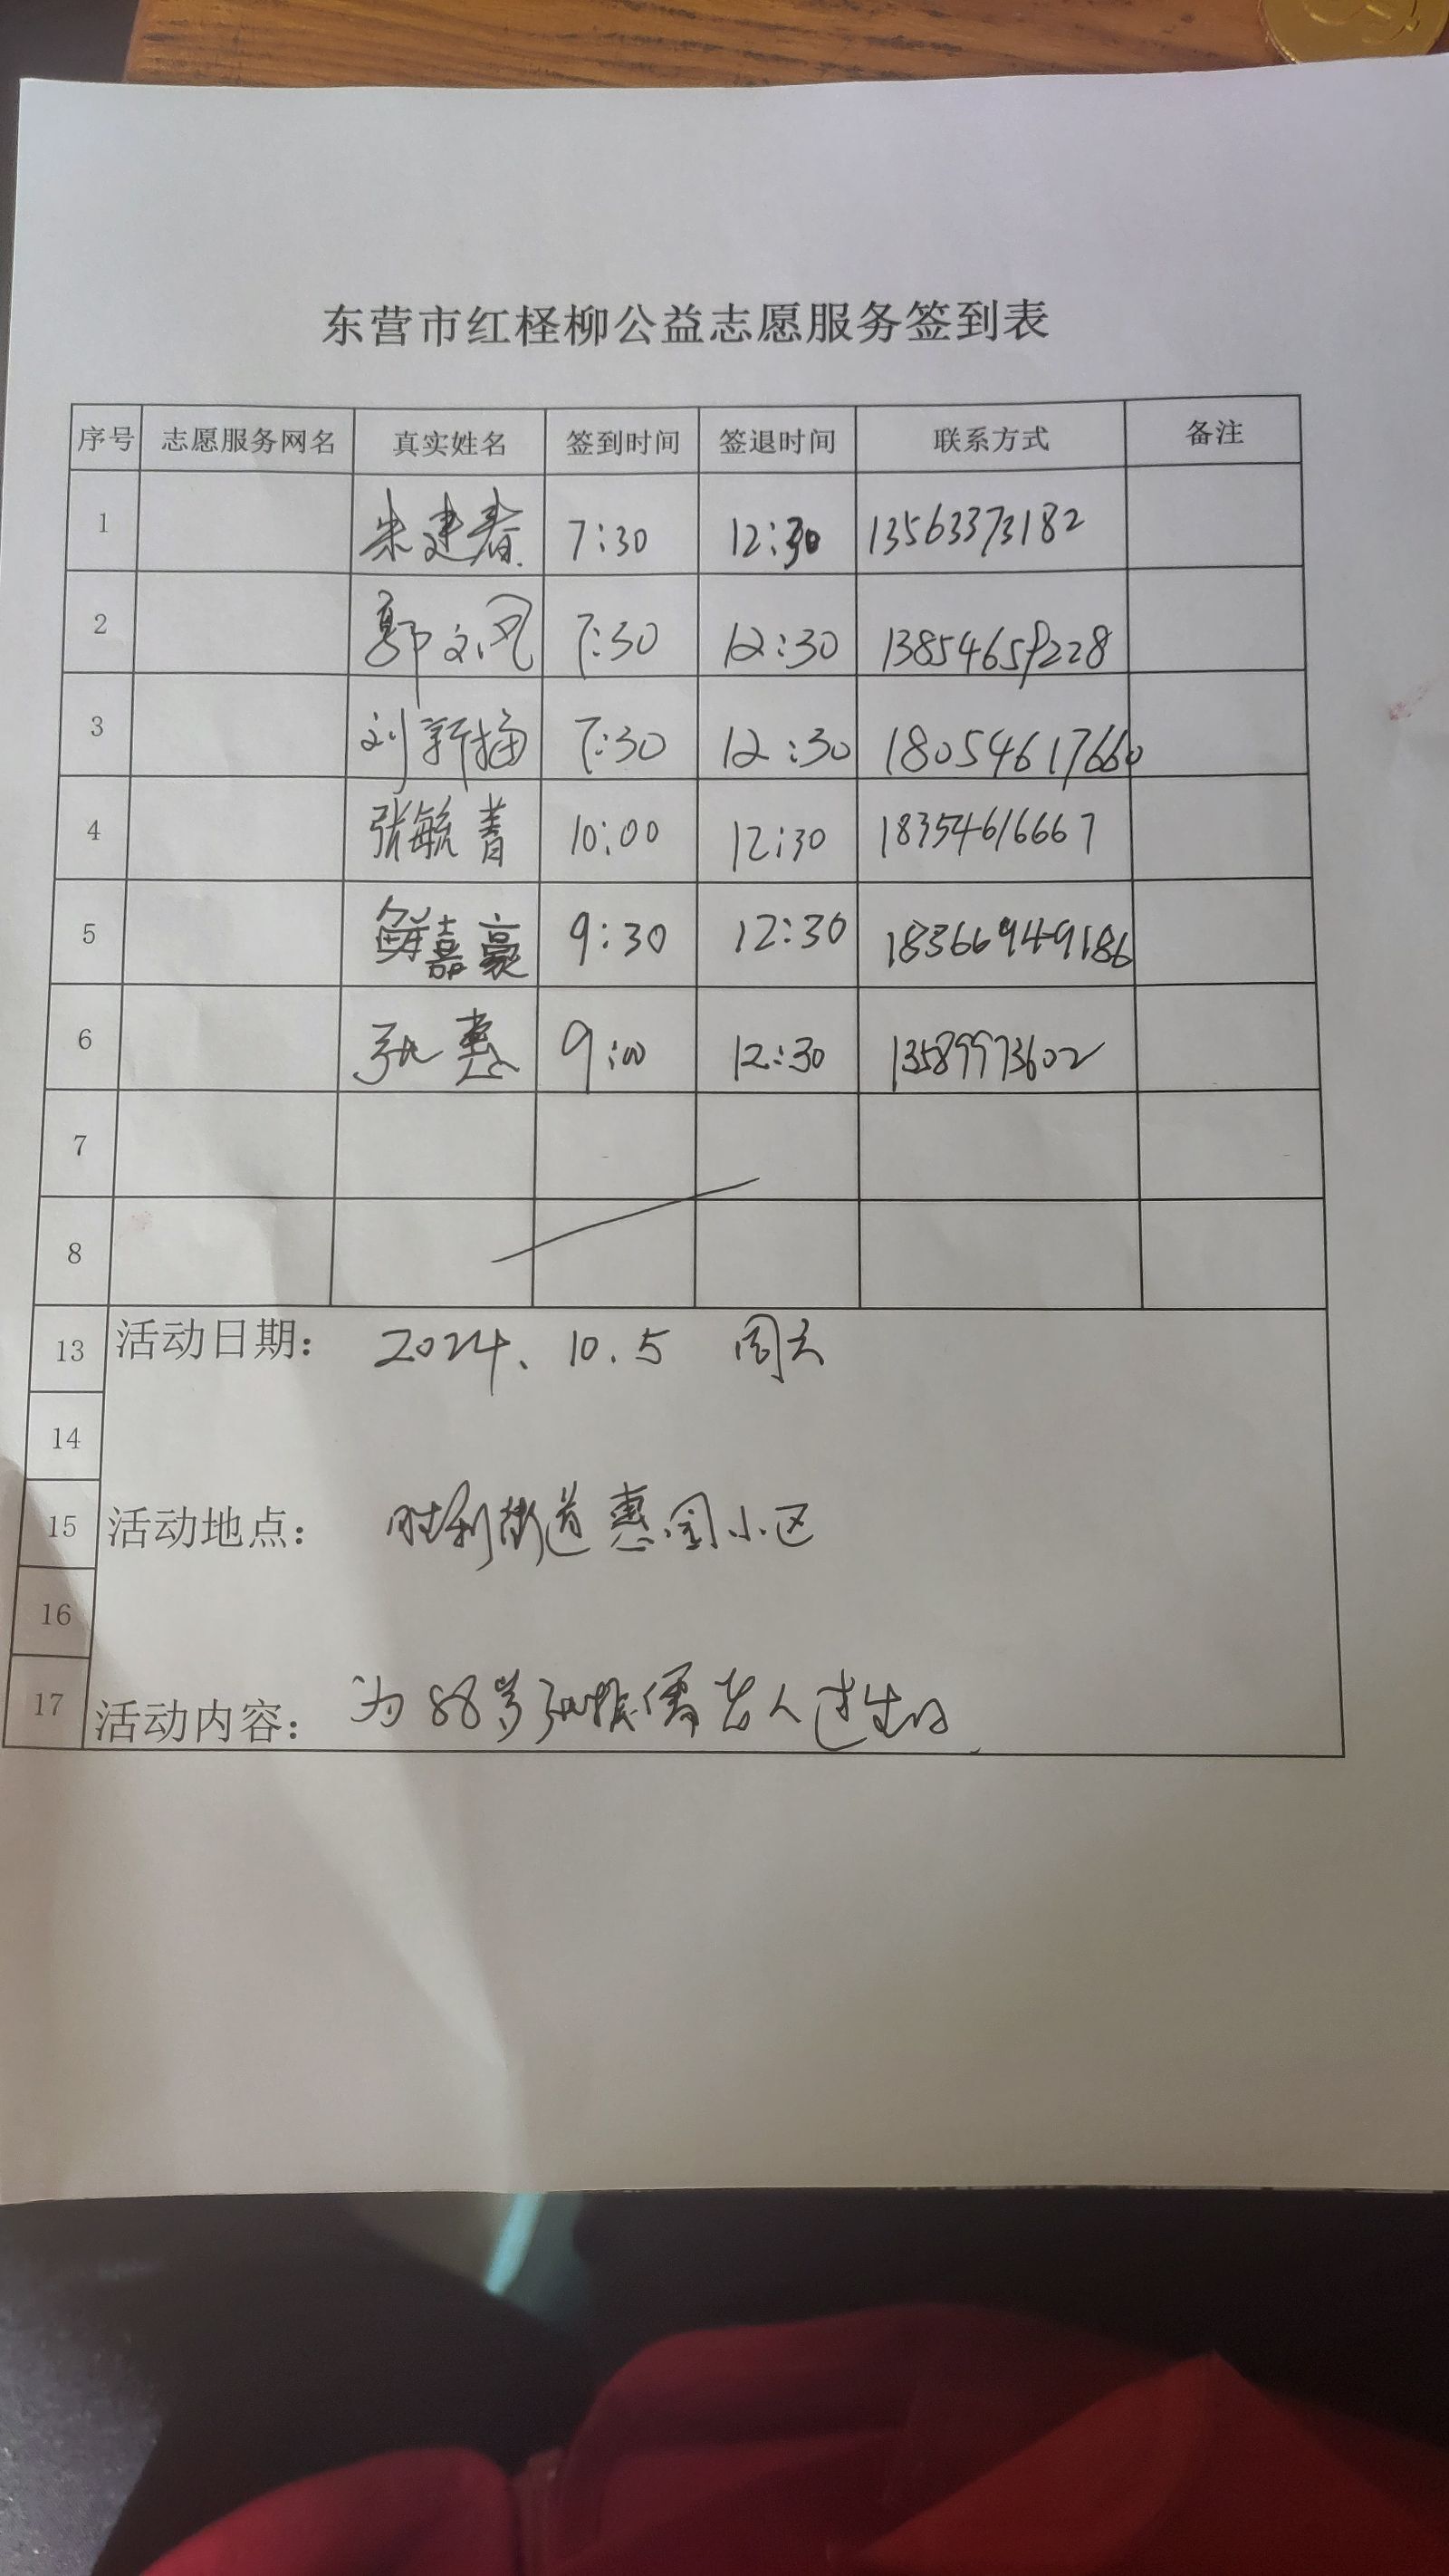 东营市红柽柳公益志愿服务签到表
序号 志愿服务网名 真实姓名 签到时间 签退时间 联系方式 备注
1 朱建春 7:30 12:30 13563373182
2 郭文风 7:30 12:30 13854659228
3 刘新梅 7:30 12:30 18054617660
4 张毓菁 10:00 12:30 18354616667
5 鲜嘉豪 9:30 12:30 18366949186
6 张惠 9:00 12:30 13589973602
7
8
13 活动日期: 2024.10.5 周六
14
15 活动地点: 胜利街道惠园小区
16
17 活动内容: 为88岁张振儒老人过生日